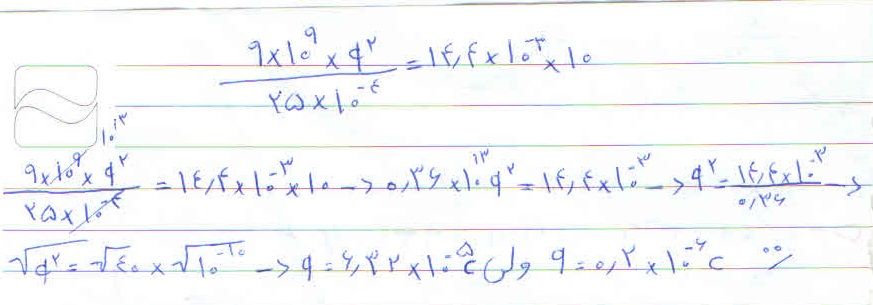 ۹×۱۰^۹ × q^۲ / ۲۵×۱۰^-۴ = ۱۴٫۴×۱۰^-۳ × ۱۰
۹×۱۰^۹ × q^۲ / ۲۵×۱۰^-۴ = ۱۴٫۴×۱۰^-۳ × ۱۰ → ۰٫۳۶×۱۰^۱۳ q^۲ = ۱۴٫۴×۱۰^-۳ → q^۲ = ۱۴٫۴×۱۰^-۳ / ۰٫۳۶ →
√q^۲ = √۴۰ × √۱۰^-۱۰ → q = ۶٫۳۲×۱۰^-۵ c ولی q = ۰٫۲×۱۰^-۶ c